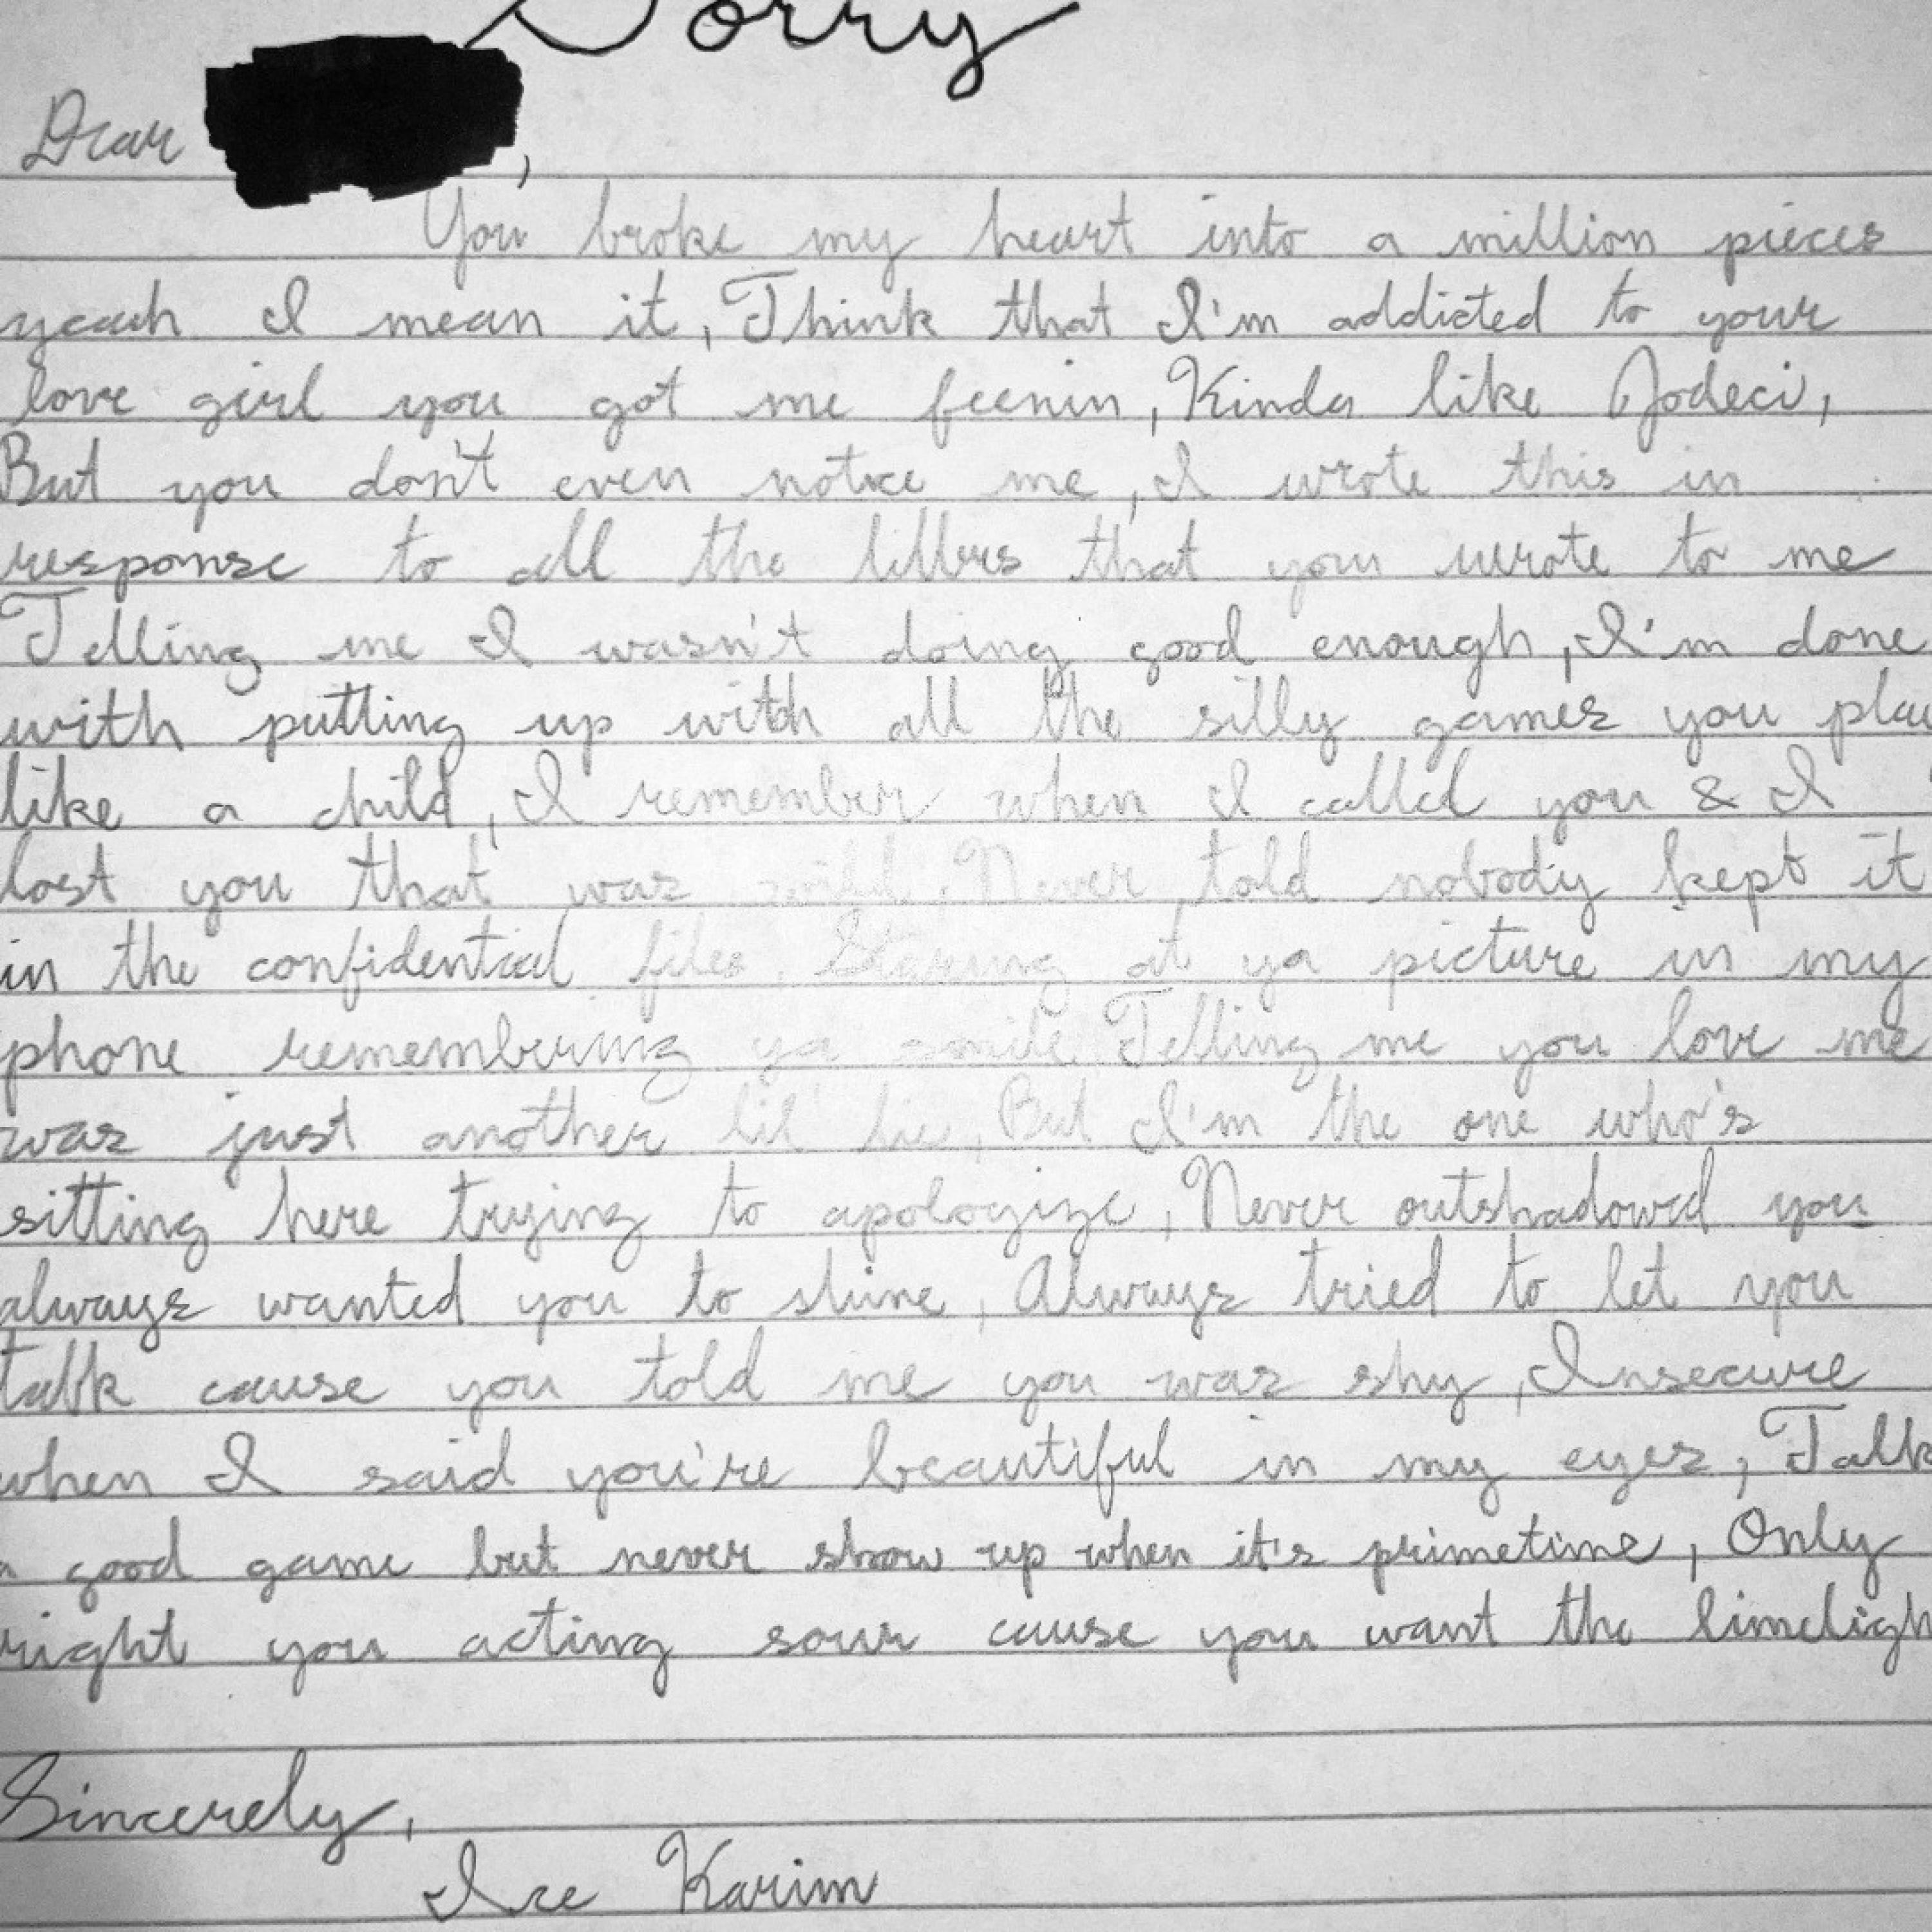 Sorry
Dear ,
You broke my heart into a million pieces
yeah I mean it, Think that I'm addicted to your
love girl you got me feenin, Kinda like Jodeci,
But you don't even notice me, I wrote this in
response to all the letters that you wrote to me
Telling me I wasn't doing good enough, I'm done
with putting up with all the silly games you play
like a child, I remember when I called you & I
lost you that was wild, Never told nobody kept it
in the confidential files, Staring at ya picture in my
phone remembering ya smile Telling me you love me
was just another lil' lie, But I'm the one who's
sitting here trying to apologize, Never outshadowed you
always wanted you to shine, Always tried to let you
talk cause you told me you was shy, Insecure
when I said you're beautiful in my eyes, Talk
a good game but never show up when it's primetime, Only
right you acting sour cause you want the limeligh
Sincerely,
Ice Karim